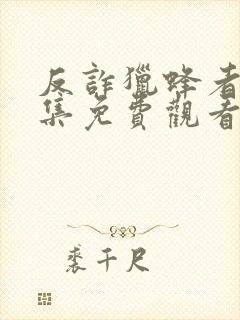 反詐獵蜂者
集免費觀看
裘千尺